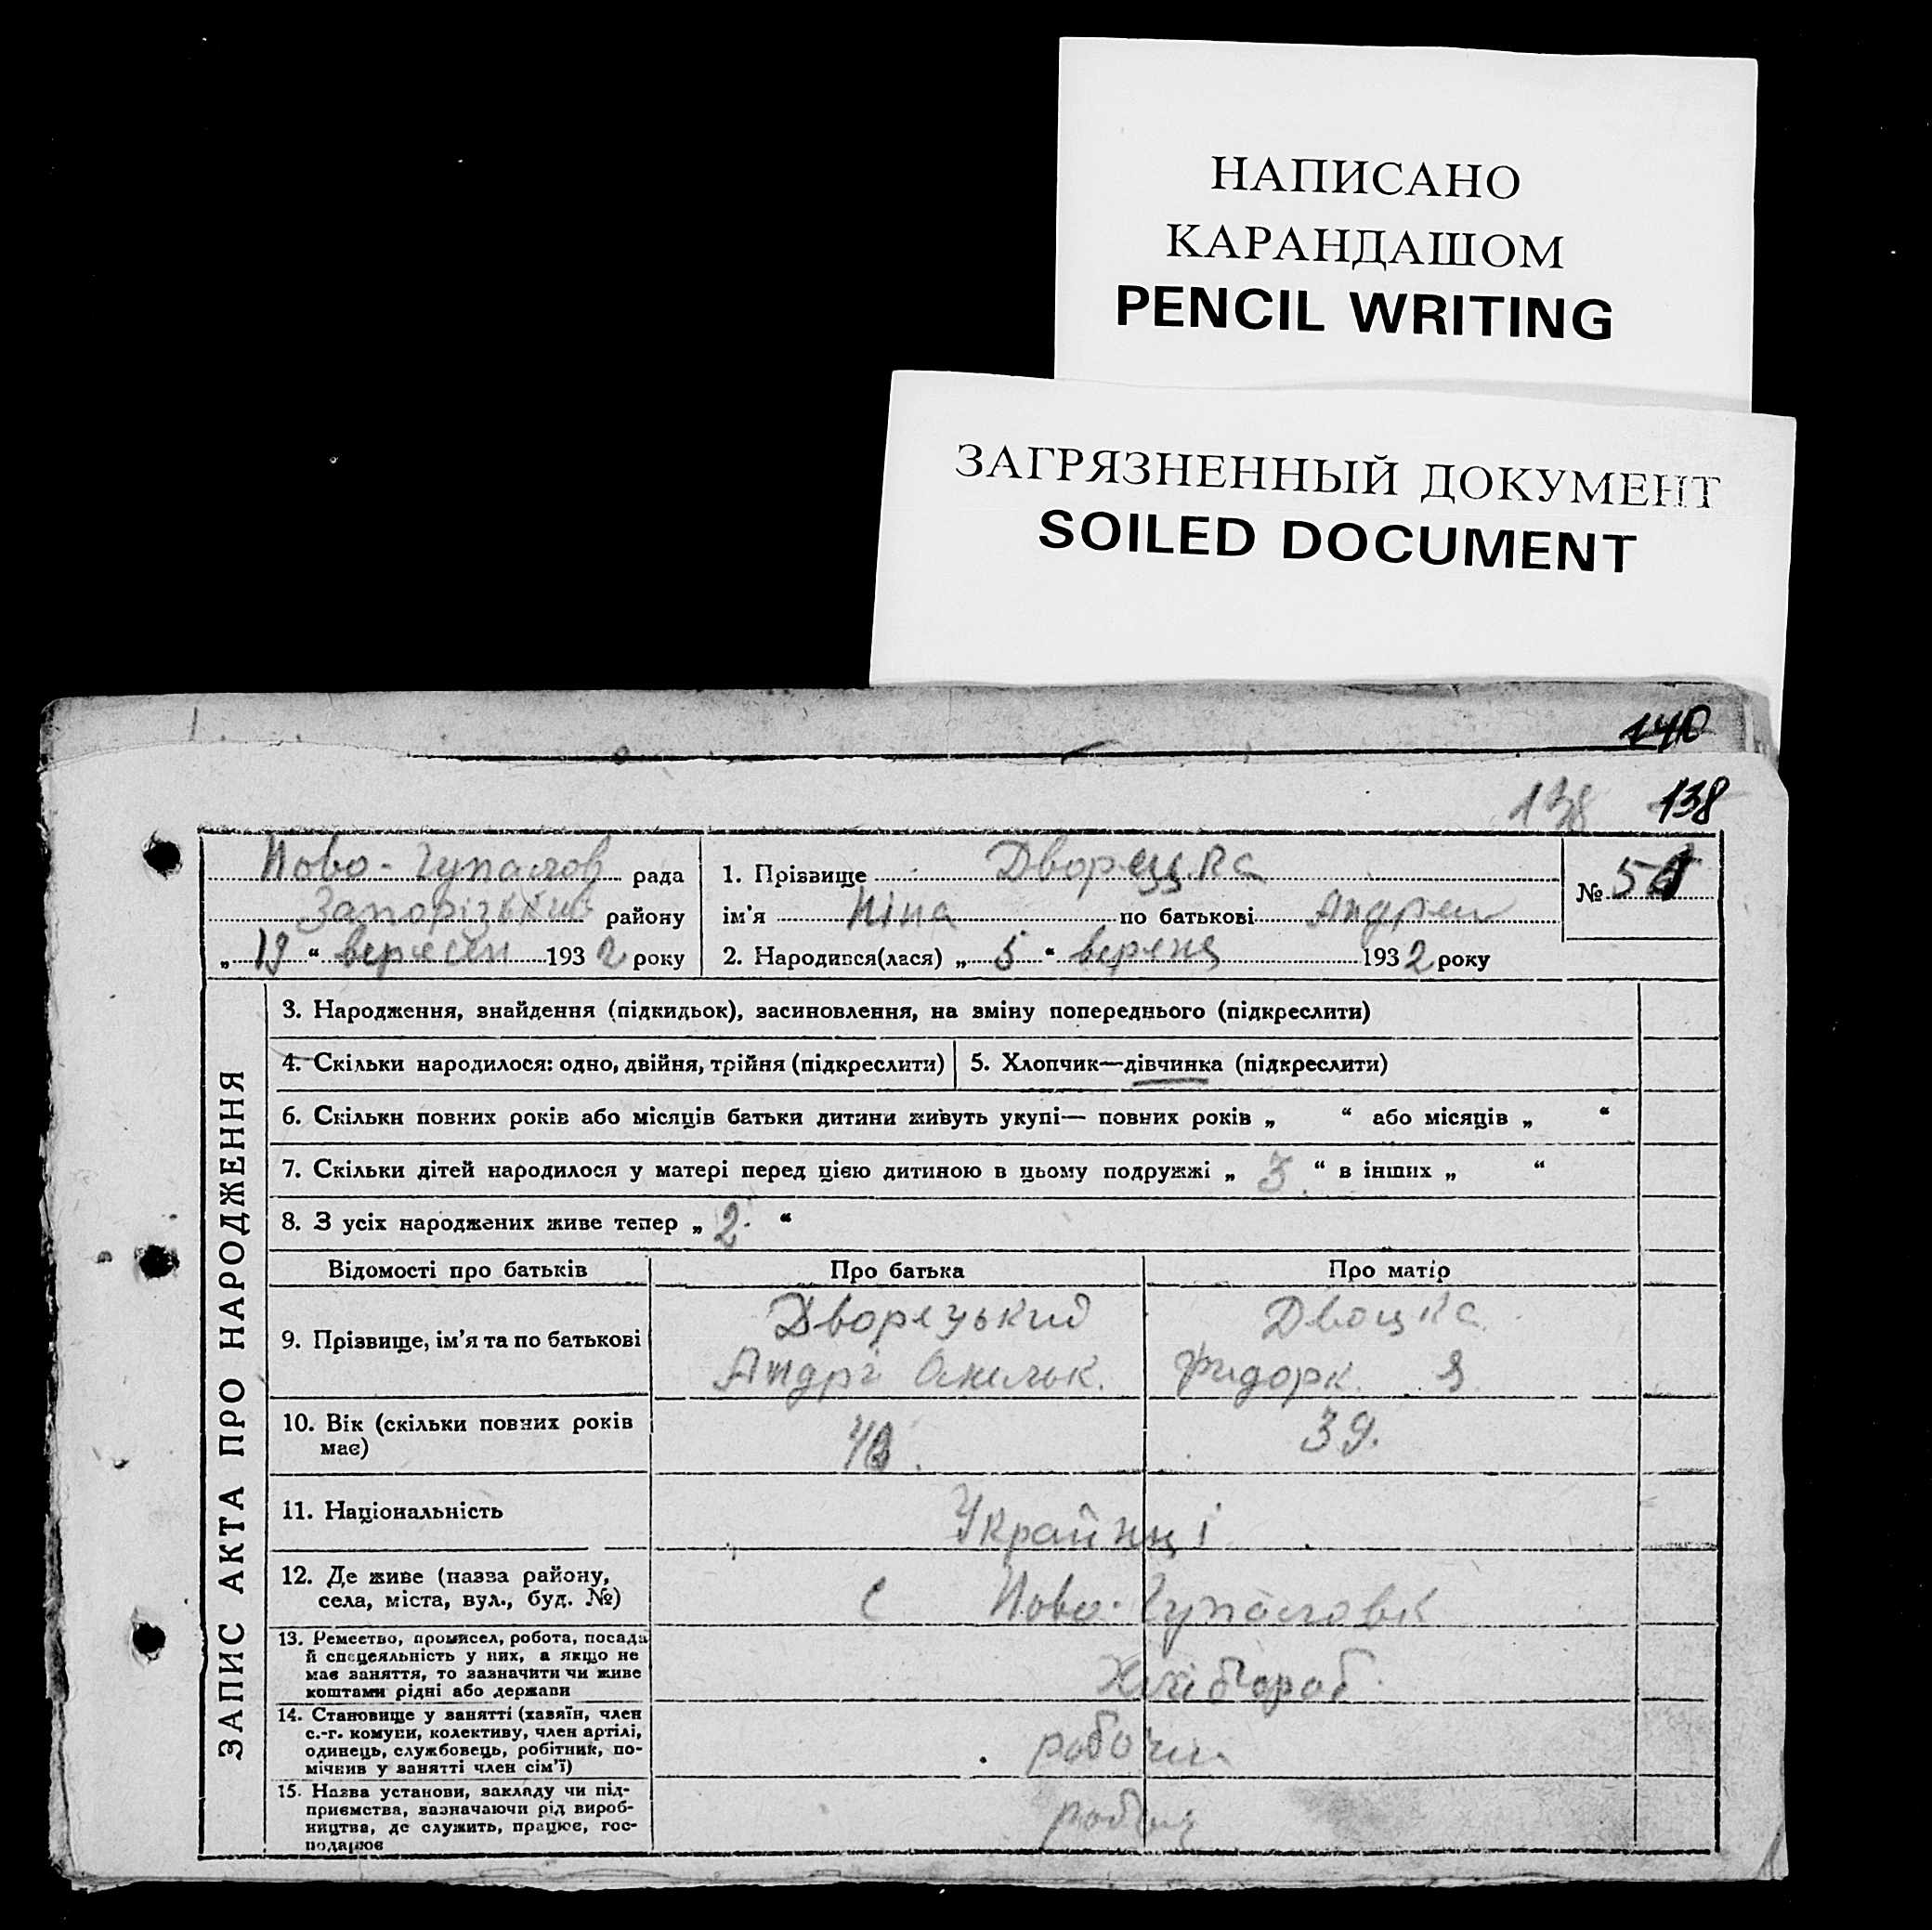 НАПИСАНО
КАРАНДАШОМ
PENCIL WRITING
ЗАГРЯЗНЕННЫЙ ДОКУМЕНТ
SOILED DOCUMENT
140
138 138
Ново-Гупалов рада
Запорізький району
„ 19 “ вересен 1932 року
1. Прізвище Дворецка
ім'я Ніна по батькові Андреи
2. Народився(лася) „ 5 “ вереня 1932 року
№
ЗАПИС АКТА ПРО НАРОДЖЕННЯ
3. Народження, знайдення (підкидьок), засиновлення, на зміну попереднього (підкреслити)
4. Скільки народилося: одно, двійня, трійня (підкреслити) 5. Хлопчик—дівчинка (підкреслити)
6. Скільки повних років або місяців батьки дитини живуть укупі— повних років „ “ або місяців „ “
7. Скільки дітей народилося у матері перед цією дитиною в цьому подружжі „ 3 “ в інших „ “
8. З усіх народжених живе тепер „ 2. “
Відомості про батьків Про батька Про матір
9. Прізвище, ім'я та по батькові
Дворецький Двоцка
Андрі
10. Вік (скільки повних років має) 39.
11. Національність Украйнці
12. Де живе (назва району,
села, міста, вул., буд. №) с Ново-Гупаловк
13. Ремество, промисел, робота, посада
й спецеяльність у них, а якщо не
має заняття, то зазначити чи живе
коштами рідні або держави
Хлібороб
14. Становище у занятті (хазяїн, член
с.-г. комуни, колективу, член артілі,
одинець, службовець, робітник, по-
мічник у занятті член сім'ї)
робочи
15. Назва установи, закладу чи під-
приємства, зазначаючи рід вироб-
ництва, де служить, працює, гос-
подарює